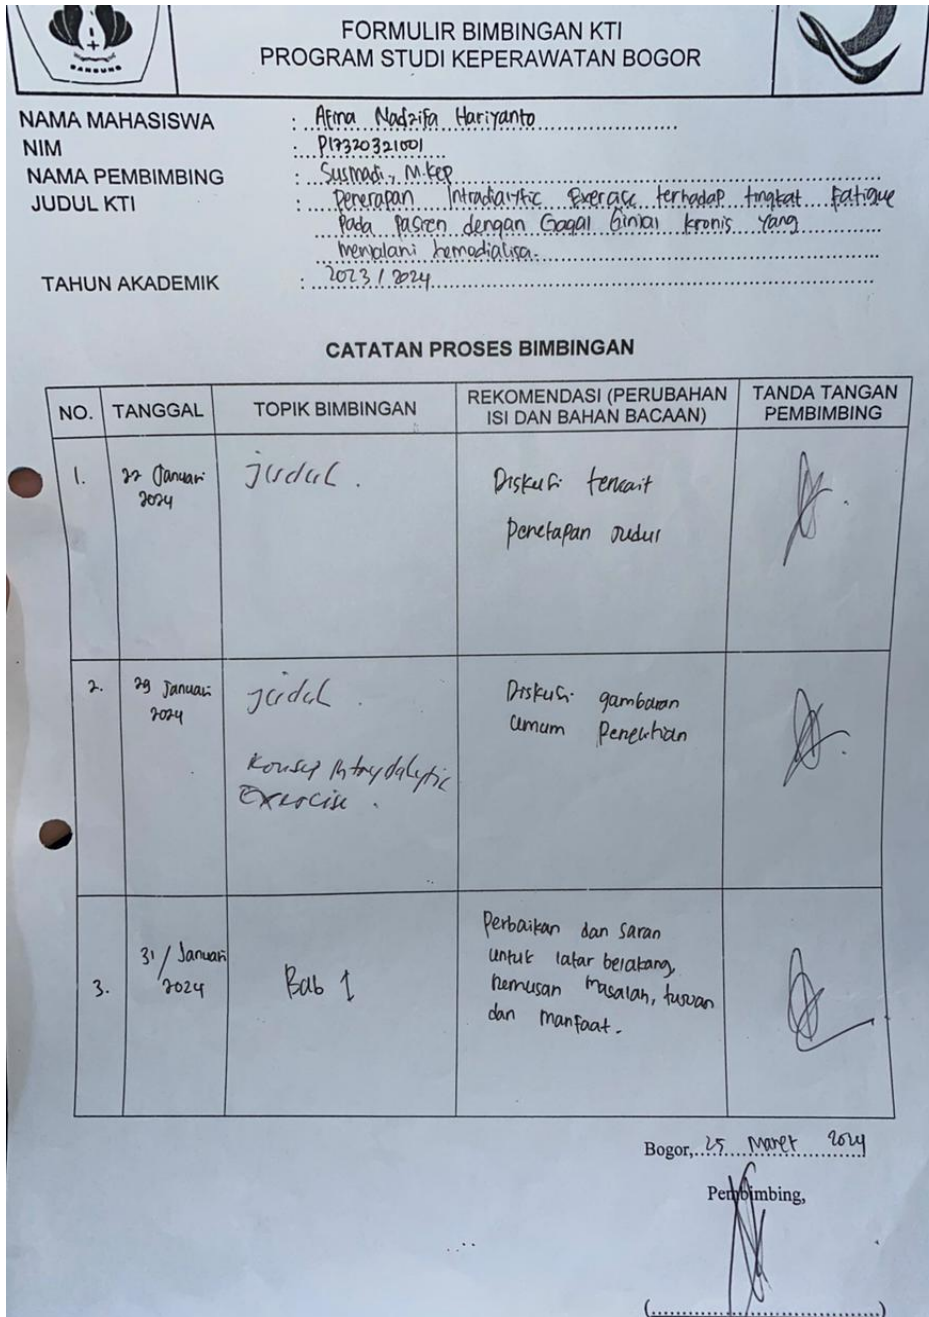 BANDUNG
FORMULIR BIMBINGAN KTI
PROGRAM STUDI KEPERAWATAN BOGOR
NAMA MAHASISWA : Afina Nadzifa Hariyanto
NIM : P17320321001
NAMA PEMBIMBING : Susmadi, M.Kep
JUDUL KTI : Penerapan Intradialytic Exercise terhadap tingkat Fatigue
Pada Pasien dengan Gagal Ginjal kronis yang
menjalani hemodialisa.
TAHUN AKADEMIK : 2023 / 2024
CATATAN PROSES BIMBINGAN
NO. TANGGAL TOPIK BIMBINGAN REKOMENDASI (PERUBAHAN ISI DAN BAHAN BACAAN) TANDA TANGAN PEMBIMBING
1. 22 Januari 2024 judul. Diskusi terkait
penetapan Judul
2. 29 Januari 2024 judul. Diskusi gambaran
umum Penelitian
Konsep Intraydalytic
Exercise.
3. 31 / Januari 2024 Bab 1 Perbaikan dan saran
untuk latar belakang,
rumusan masalah, tujuan
dan manfaat.
Bogor, 25 Maret 2024
Pembimbing,
(..............................)